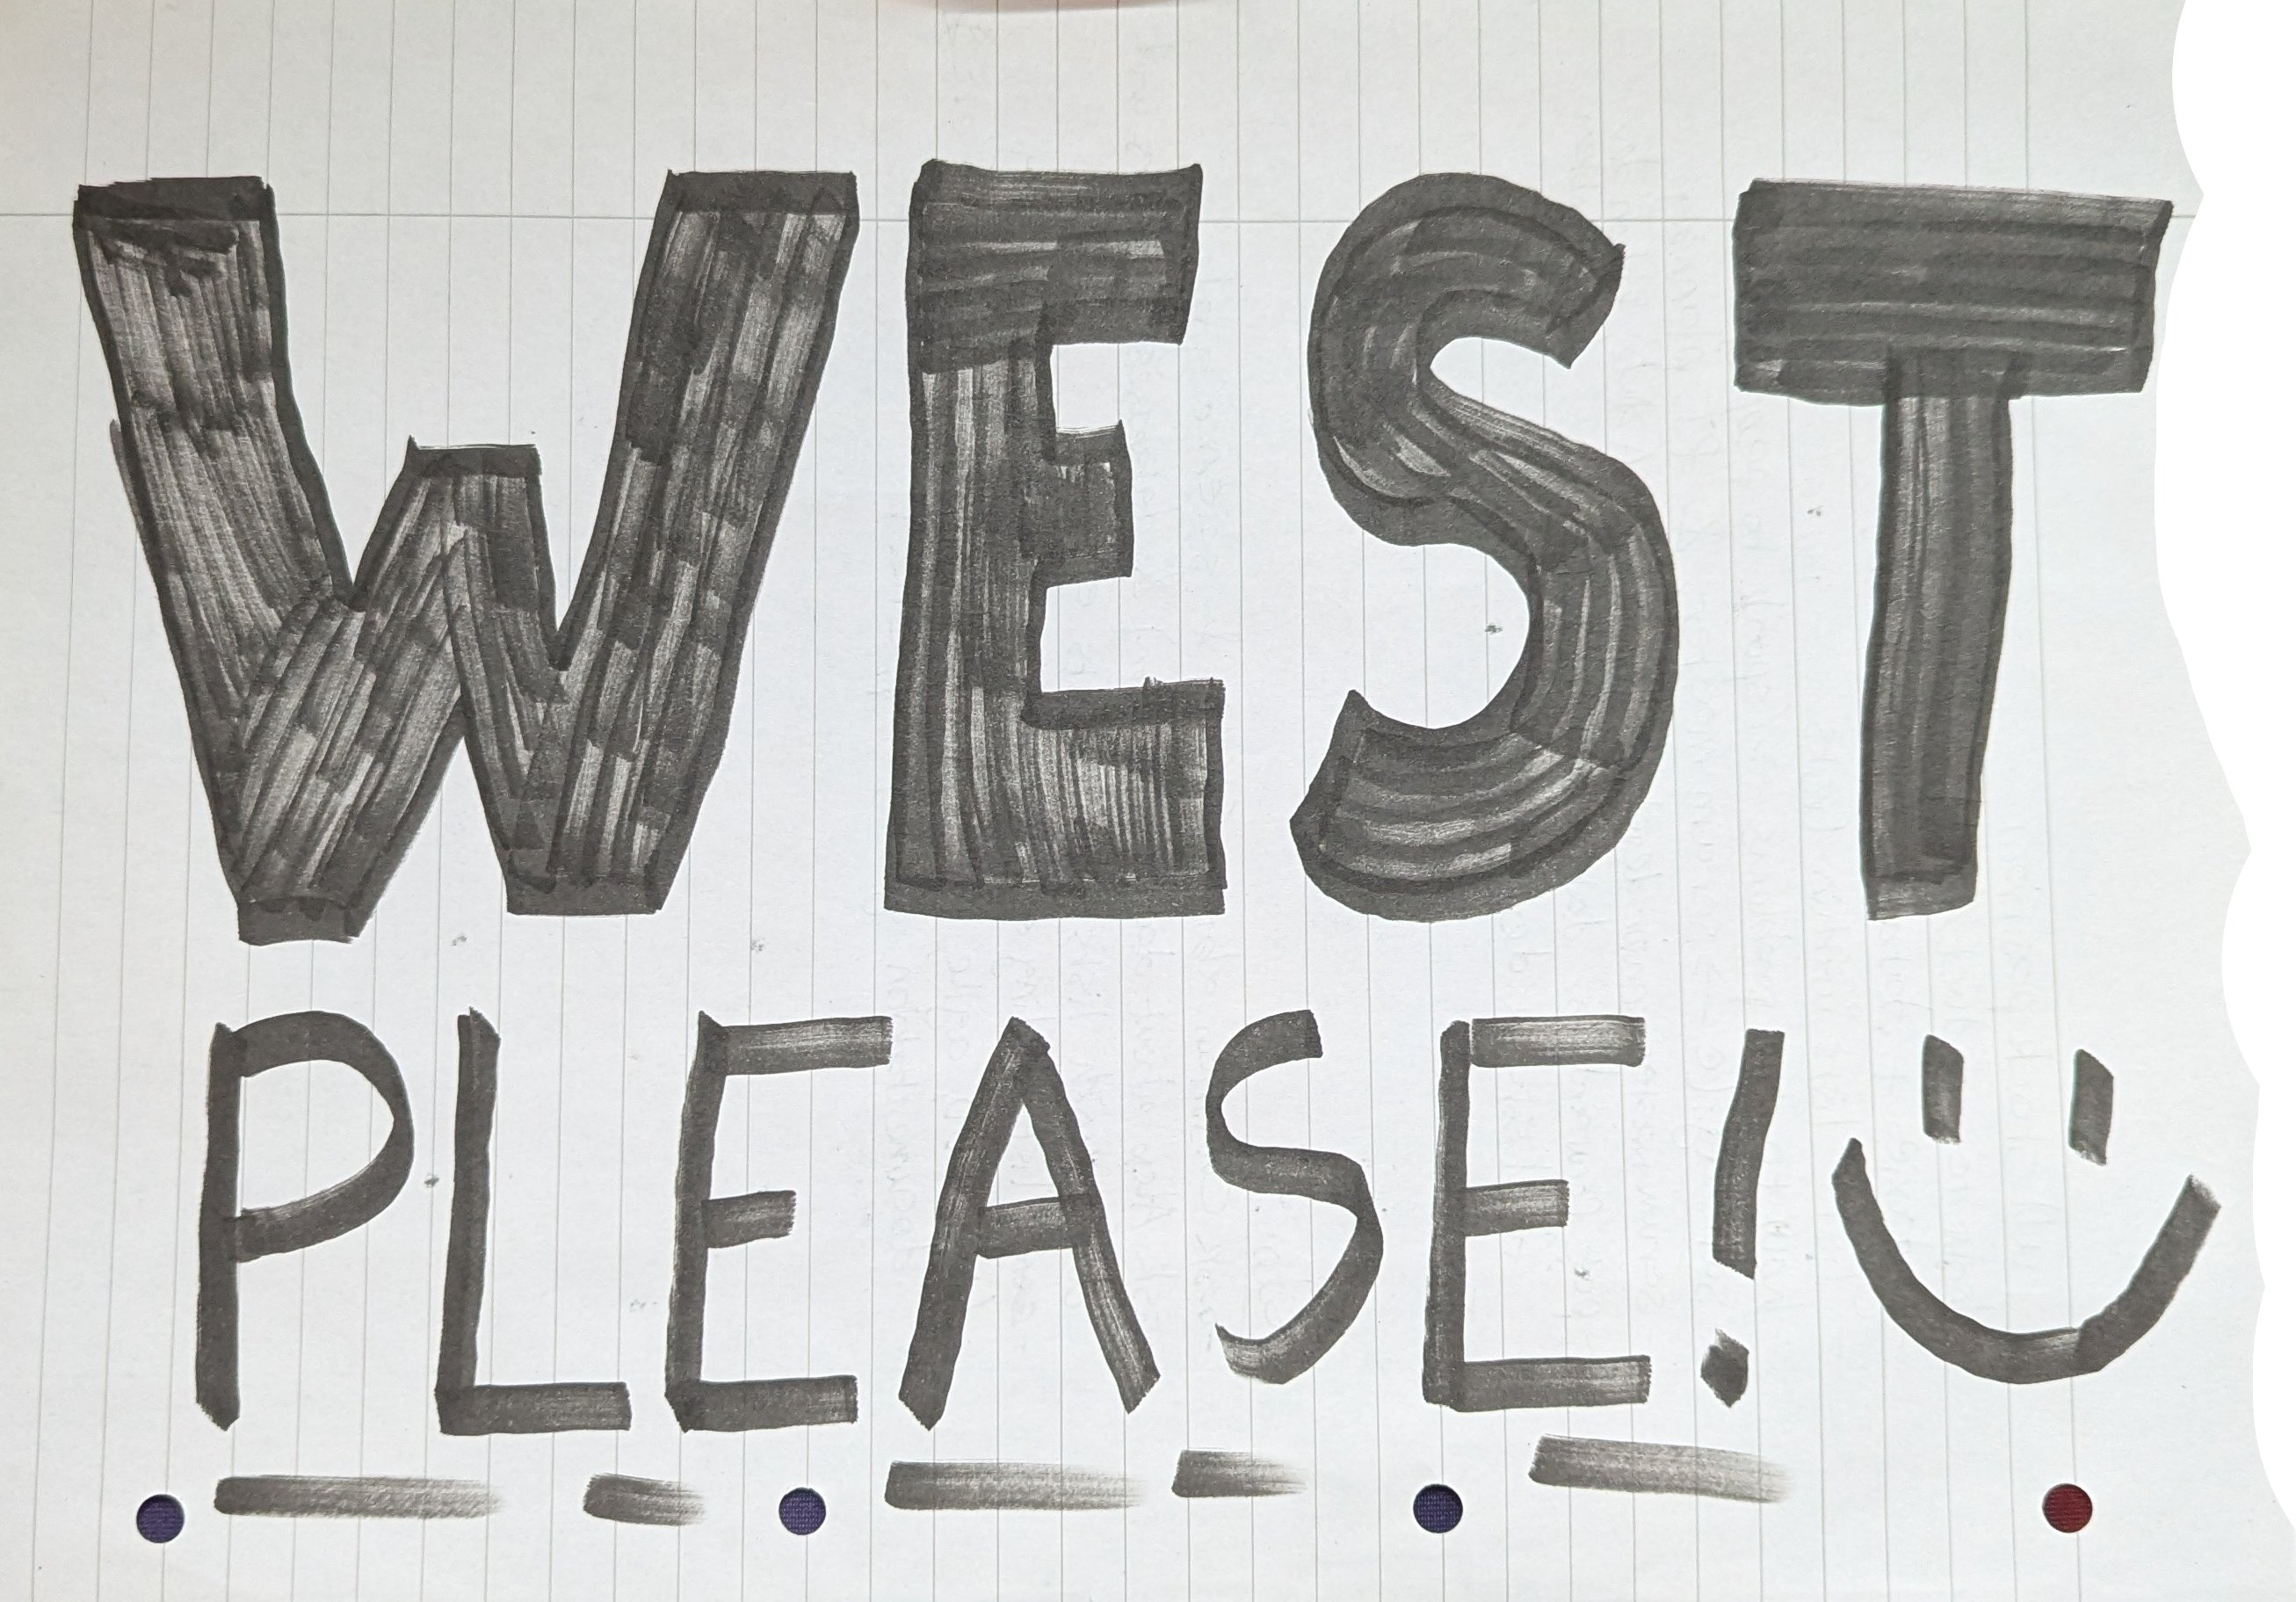 WEST
PLEASE!